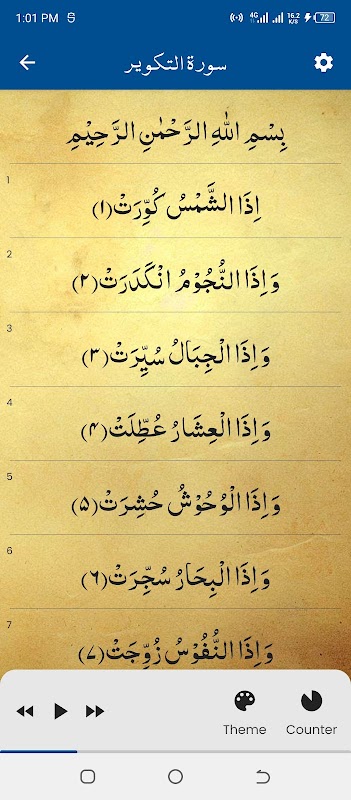 1:01 PM S 4G 16.2 K/S 72
سورة التكوير
بِسْمِ اللّٰهِ الرَّحْمٰنِ الرَّحِيْمِ
1
اِذَا الشَّمْسُ كُوِّرَتْ(۱)
2
وَاِذَا النُّجُوْمُ انْكَدَرَتْ(۲)
3
وَاِذَا الْجِبَالُ سُيِّرَتْ(۳)
4
وَاِذَا الْعِشَارُ عُطِّلَتْ(۴)
5
وَاِذَا الْوُحُوْشُ حُشِرَتْ(۵)
6
وَاِذَا الْبِحَارُ سُجِّرَتْ(۶)
7
وَاِذَا النُّفُوْسُ زُوِّجَتْ(۷)
Theme Counter